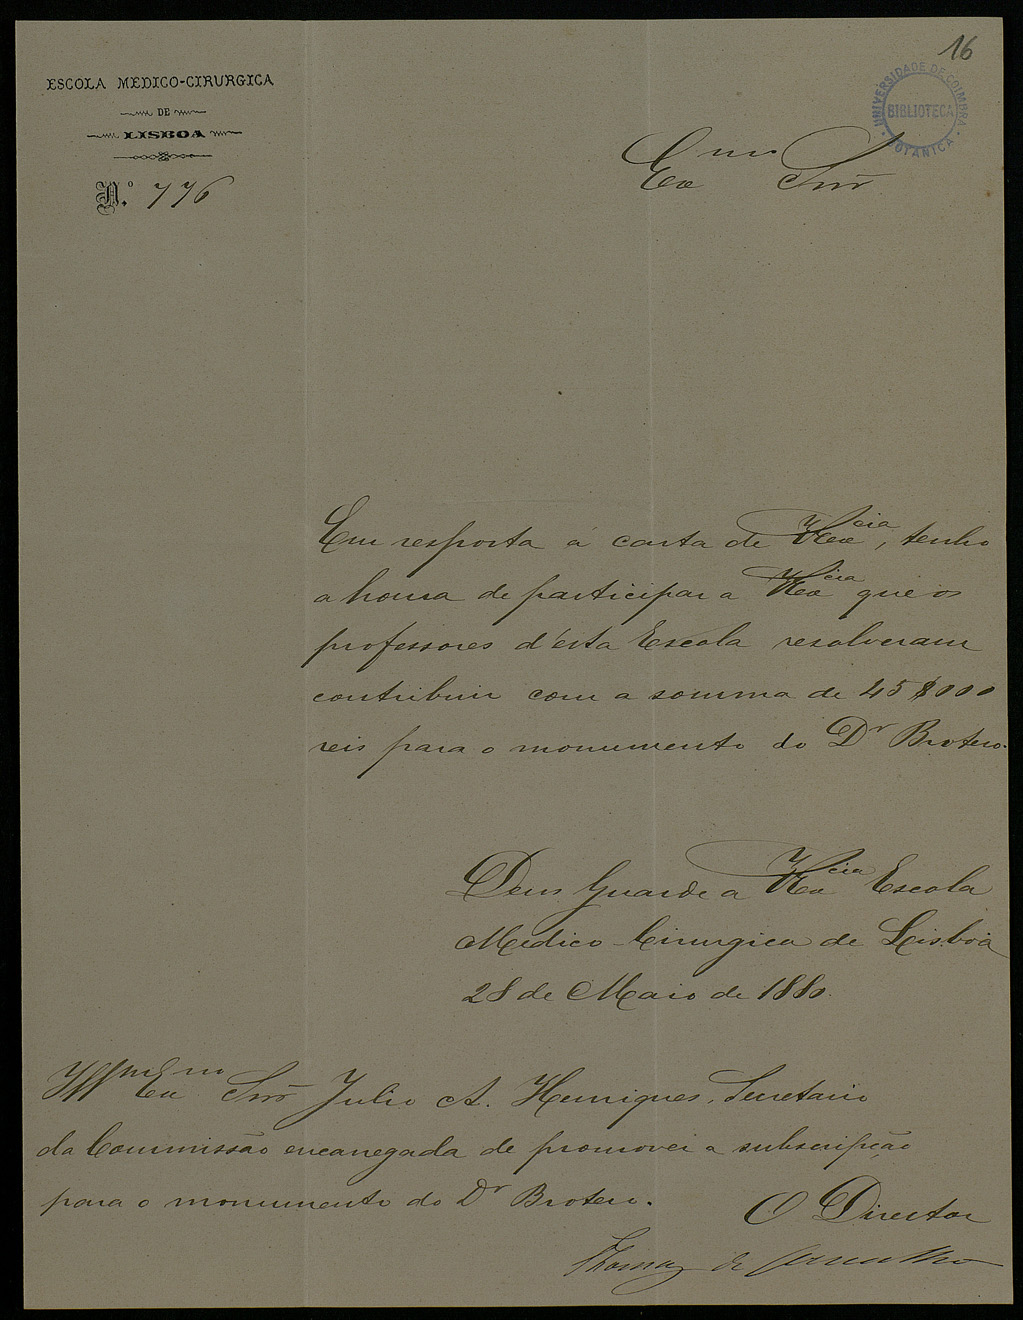 16
ESCOLA MEDICO-CIRURGICA
DE
LISBOA
N.º 776
UNIVERSIDADE DE COIMBRA
BIBLIOTECA
BOTANICA
Exmo Snr
Em resposta á carta de V Excia, tenho
a honra de participar a V Excia que os
professores d'esta Escola resolveram
contribuir com a somma de 45$000
reis para o monumento do Dr Brotero.
Deus Guarde a V Excia Escola
Medico-Cirurgica de Lisboa
28 de Maio de 1880.
Illmo Exmo Snr Julio A. Henriques, Secretario
da Commissão encarregada de promover a subscripção
para o monumento do Dr Brotero.
O Director
Thomaz de Carvalho